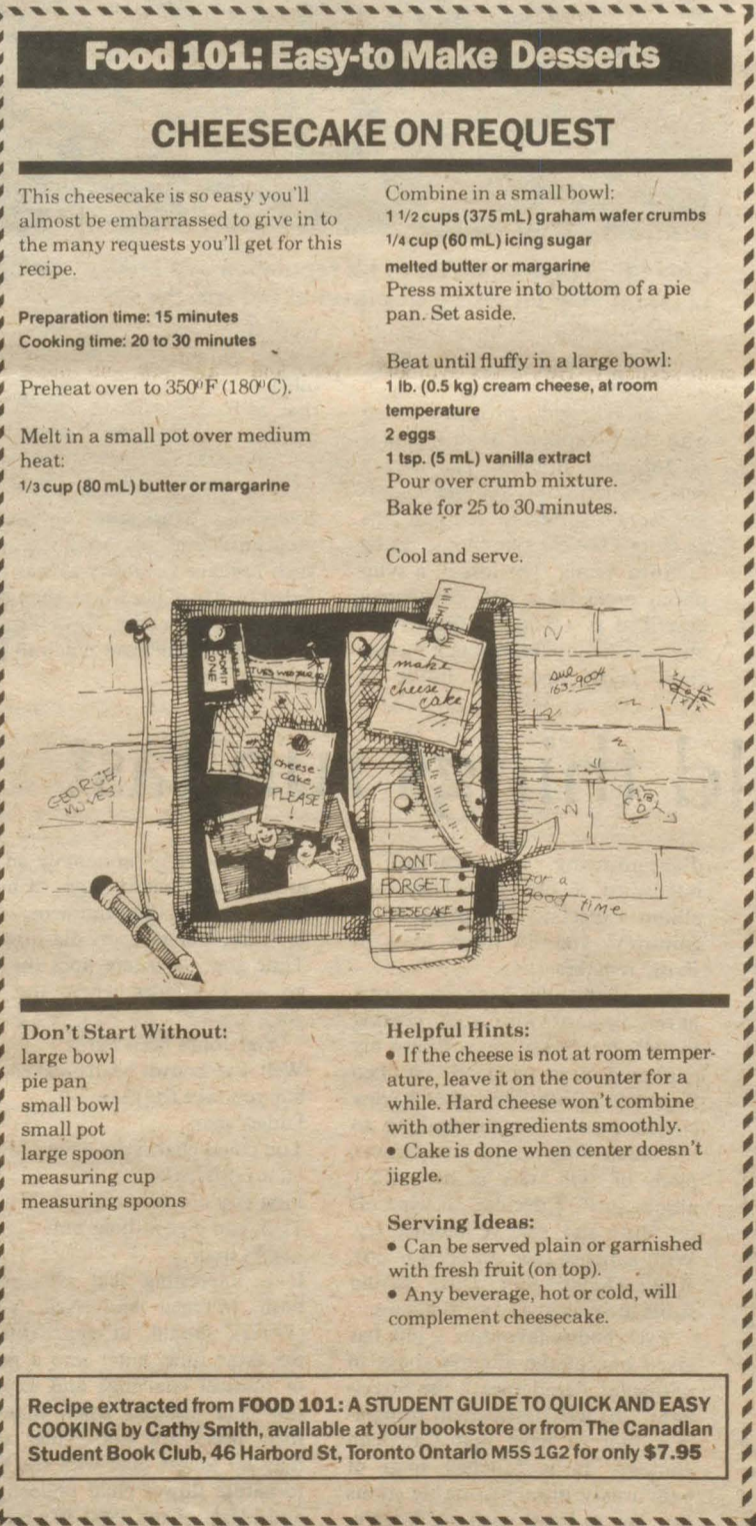 Food 101: Easy-to Make Desserts
CHEESECAKE ON REQUEST
This cheesecake is so easy you'll
almost be embarrassed to give in to
the many requests you'll get for this
recipe.
Preparation time: 15 minutes
Cooking time: 20 to 30 minutes
Preheat oven to 350°F (180°C).
Melt in a small pot over medium
heat:
1/3 cup (80 mL) butter or margarine
Combine in a small bowl:
1 1/2 cups (375 mL) graham wafer crumbs
1/4 cup (60 mL) icing sugar
melted butter or margarine
Press mixture into bottom of a pie
pan. Set aside.
Beat until fluffy in a large bowl:
1 lb. (0.5 kg) cream cheese, at room
temperature
2 eggs
1 tsp. (5 mL) vanilla extract
Pour over crumb mixture.
Bake for 25 to 30 minutes.
Cool and serve.
make
cheese
cake
cheese-
cake,
PLEASE
DONT
FORGET
CHEESECAKE
GEORGE
LOVES
for a
good time
Don't Start Without:
large bowl
pie pan
small bowl
small pot
large spoon
measuring cup
measuring spoons
Helpful Hints:
• If the cheese is not at room temper-
ature, leave it on the counter for a
while. Hard cheese won't combine
with other ingredients smoothly.
• Cake is done when center doesn't
jiggle.
Serving Ideas:
• Can be served plain or garnished
with fresh fruit (on top).
• Any beverage, hot or cold, will
complement cheesecake.
Recipe extracted from FOOD 101: A STUDENT GUIDE TO QUICK AND EASY
COOKING by Cathy Smith, available at your bookstore or from The Canadian
Student Book Club, 46 Harbord St, Toronto Ontario M5S 1G2 for only $7.95